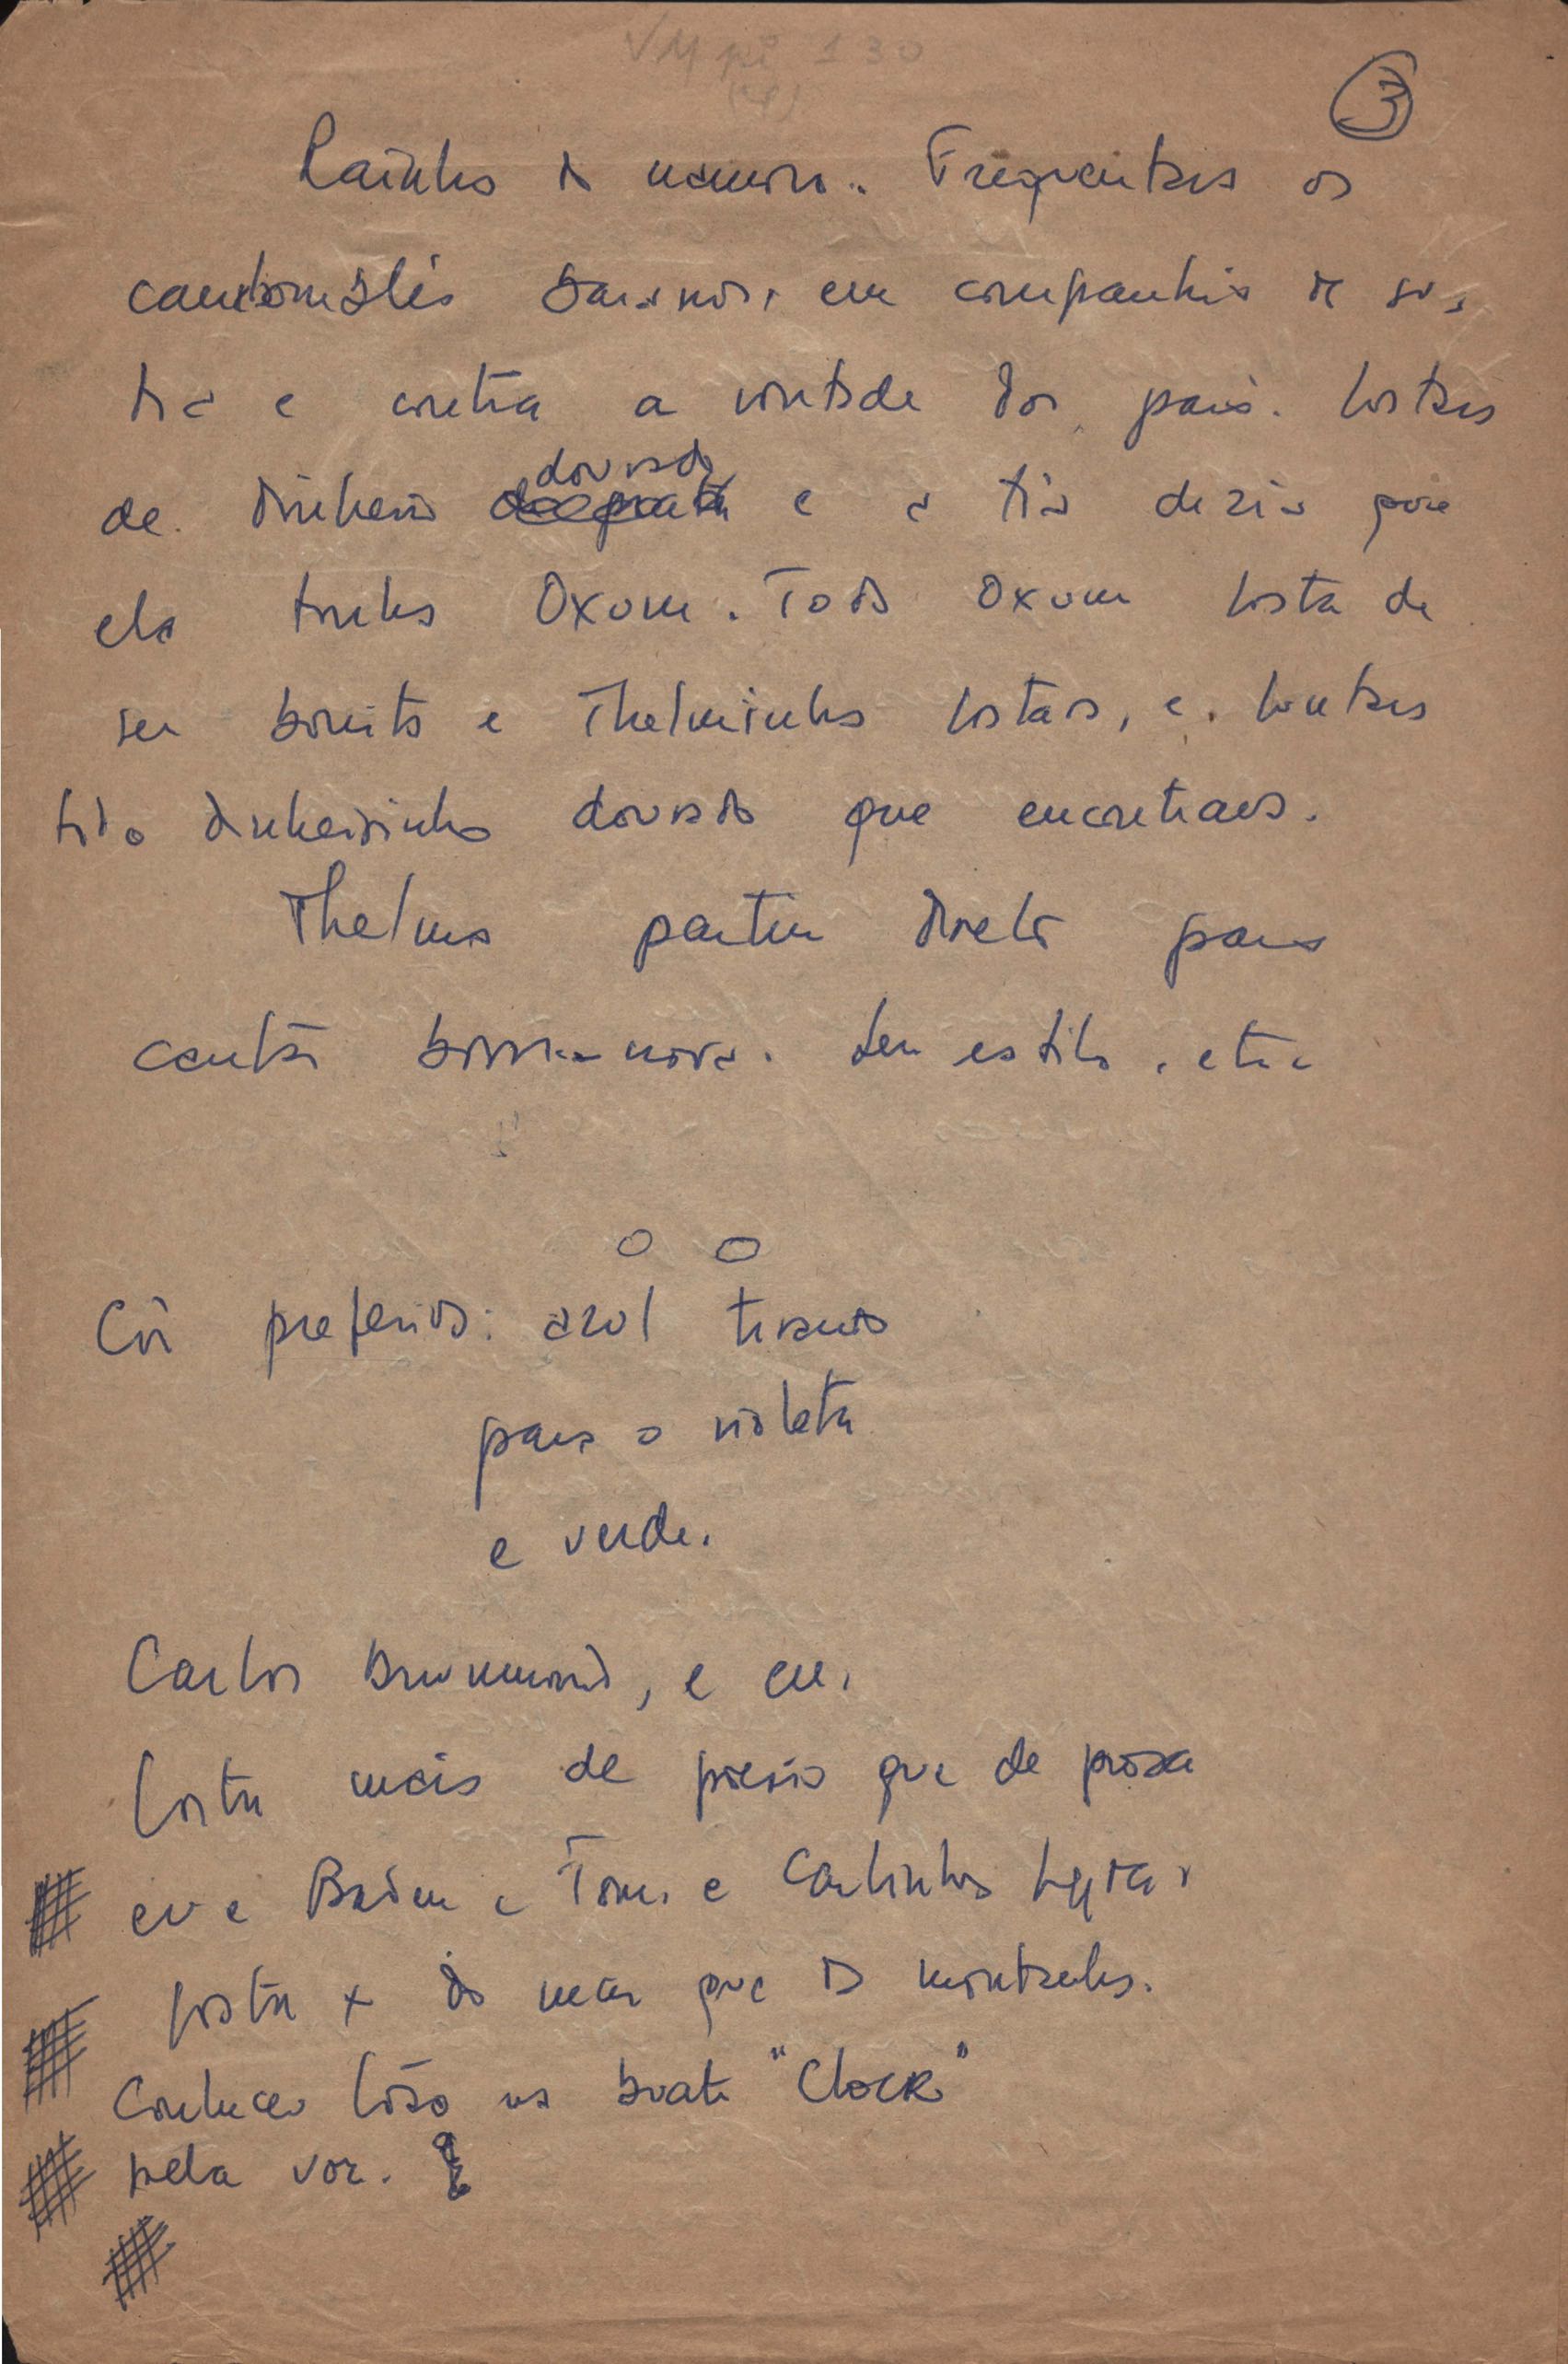 VMpi 130
3
Rainha da memória. Frequentava os
candomblés baianos, em companhia de sua
tia e contra a vontade dos pais. Gostava
de dinheiro dourado e a tia dizia que
ela tinha Oxum. Toda Oxum gosta de
ser bonita e Thelminha gostava, e juntava
todo dinheirinho dourado que encontrava.
Thelma partiu direto para
cantar bossa-nova. Seu estilo, etc
Côr preferida: azul tirando
para o violeta
e verde.
Carlos Drummond, e eu.
Gosta mais de poesia que de prosa
eu e Baden e Tom, e Carlinhos Lyra,
gosta + do mar que da montanha.
Conheceu na boate "Clock"
pela voz.